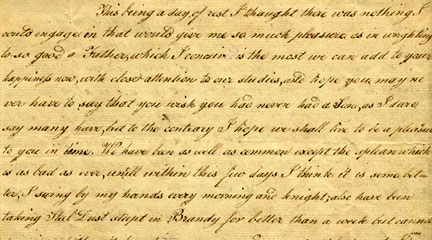 This being a day of rest I thought there was nothing I
could engage in that would give me so much pleasure as in wrighting
to so good a Father, which I conceive is the most we can add to your
happiness now, with closest attention to our studies, and hope you may ne
ver have to say that you wish you had never had a Son, as I dare
say many have, but to the contrary I hope we shall live to be a pleasure
to you in time. We have been as well as common except the spleen which
is as bad as ever, until within this few days I think it is some bet-
ter, I swing by my hands every morning and knight; also have been
taking Steel Dust steept in Brandy for better than a week but cannot